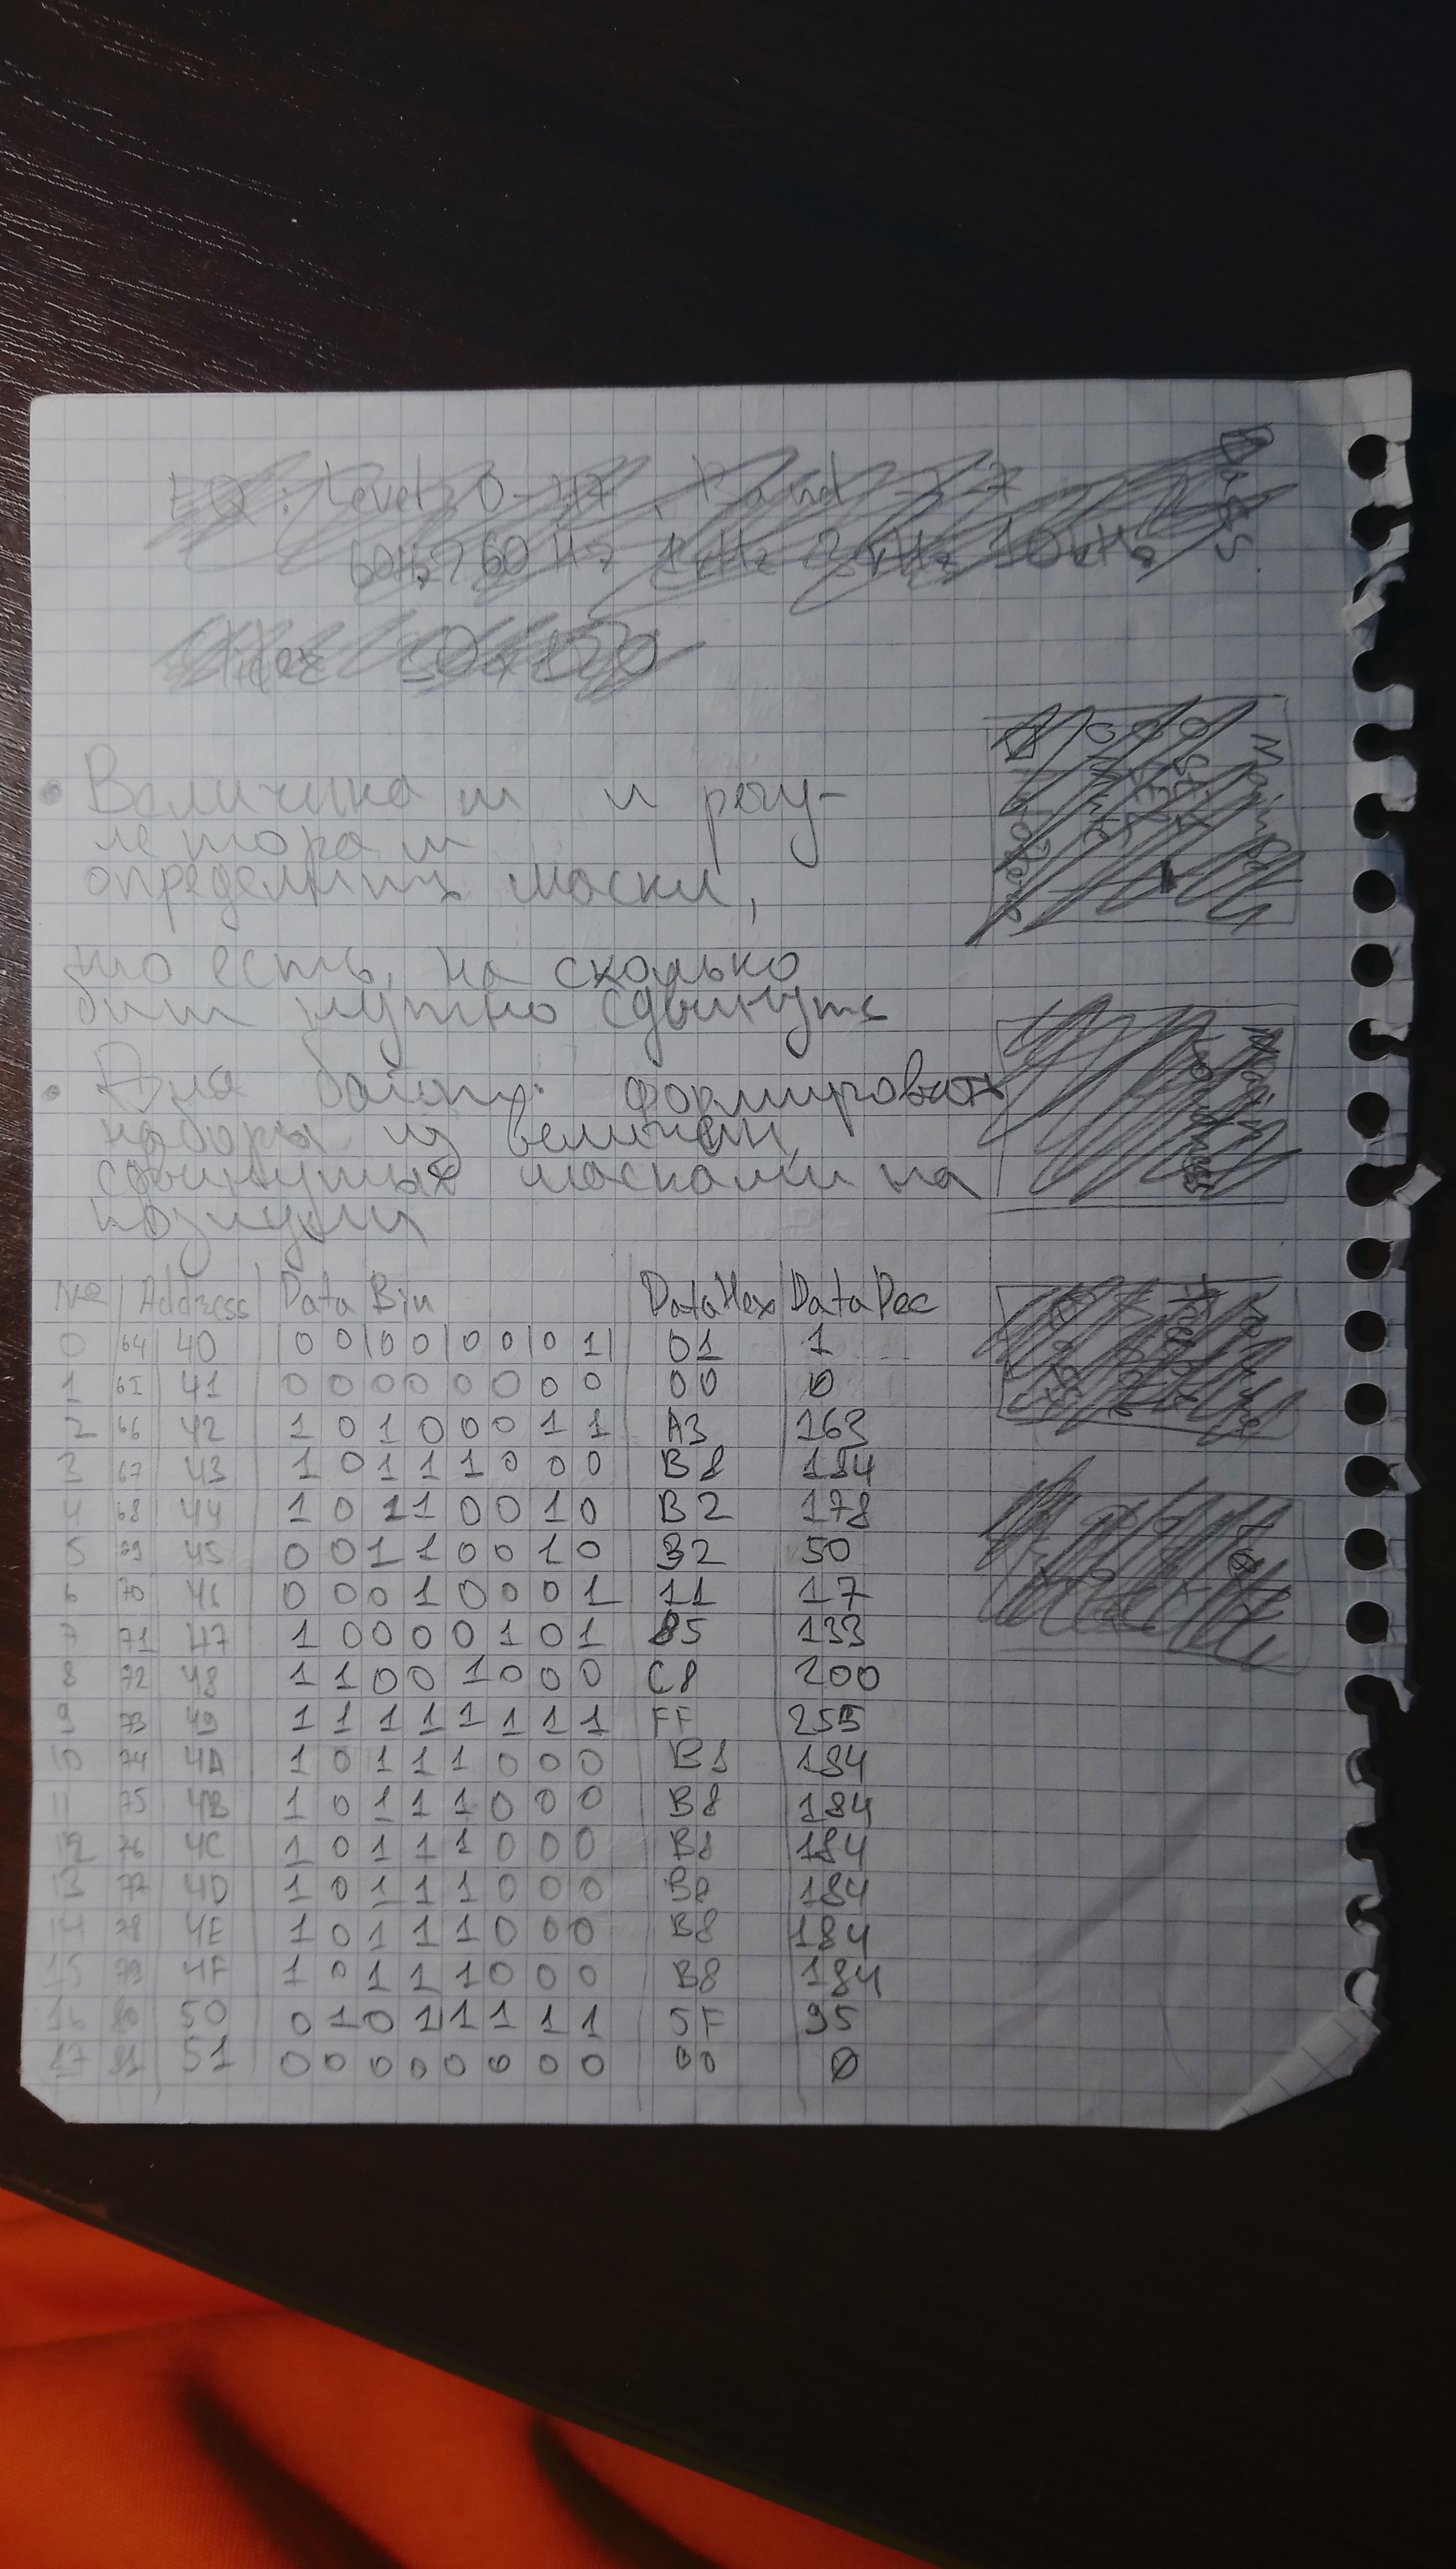 EQ: Level 0-47, Band 3-7
60Hz 1kHz 10kHz
50 x 120
• Величинам и регу-
леторам
определить маски,
то есть, на сколько
бит нужно сдвинуть
• Для байта: формировать
наборы из величин,
сдвинутых масками на
позиции
№ | Address | Data Bin | Data Hex | Data Dec
0 64 40 0 0 0 0 0 0 0 1 01 1
1 65 41 0 0 0 0 0 0 0 0 00 0
2 66 42 1 0 1 0 0 0 1 1 A3 163
3 67 43 1 0 1 1 1 0 0 0 B8 184
4 68 44 1 0 1 1 0 0 1 0 B2 178
5 69 45 0 0 1 1 0 0 1 0 32 50
6 70 46 0 0 0 1 0 0 0 1 11 17
7 71 47 1 0 0 0 0 1 0 1 85 133
8 72 48 1 1 0 0 1 0 0 0 C8 200
9 73 49 1 1 1 1 1 1 1 1 FF 255
10 74 4A 1 0 1 1 1 0 0 0 B8 184
11 75 4B 1 0 1 1 1 0 0 0 B8 184
12 76 4C 1 0 1 1 1 0 0 0 B8 184
13 77 4D 1 0 1 1 1 0 0 0 B8 184
14 78 4E 1 0 1 1 1 0 0 0 B8 184
15 79 4F 1 0 1 1 1 0 0 0 B8 184
16 80 50 0 1 0 1 1 1 1 1 5F 95
17 81 51 0 0 0 0 0 0 0 0 00 0
Main
Mute
Main
Loudness
Volume